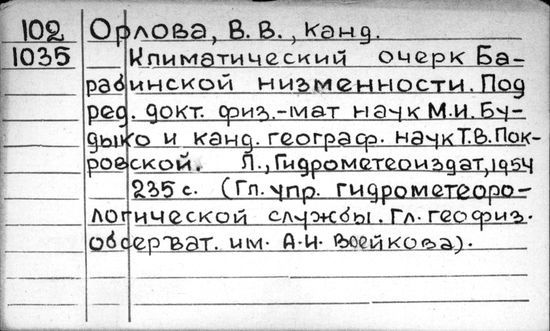 102 Орлова, В. В., канд.
1035 Климатический очерк Ба-
рабинской низменности. Под
ред. докт. физ.-мат наук М.И. Бу-
дыко и канд. географ. наук Т.В. Пок-
ровской. Л., Гидрометеоиздат, 1954
235 с. (Гл. упр. гидрометеоро-
логической службы. Гл. геофиз.
обсерват. им. А.И. Воейкова).